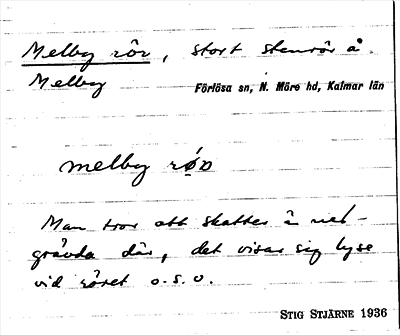 Melby rör, stort stenrör å
Melby Förlösa sn, N. Möre hd, Kalmar län
melby rø̀r
Man tror att skatter är ned-
grävda där, det visar sig lyse
vid röret o.s.v.
STIG STJÄRNE 1936